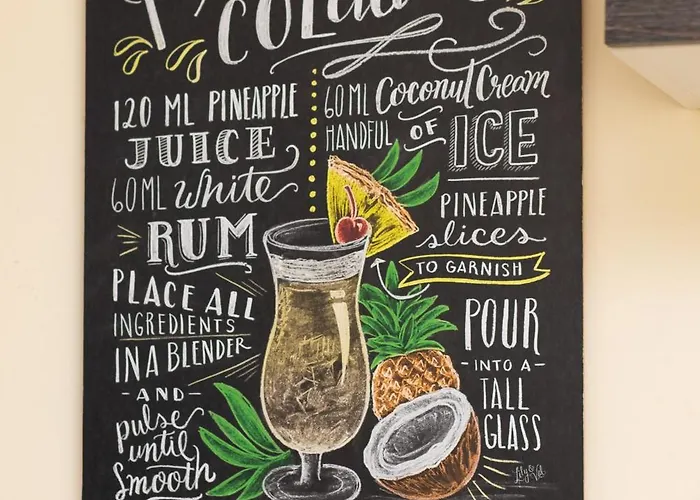 COLada
120 ML PINEAPPLE
JUICE
60ML White
RUM
PLACE ALL
INGREDIENTS
IN A BLENDER
-AND-
pulse
until
Smooth
60ML Coconut Cream
HANDFUL OF ICE
PINEAPPLE
slices
TO GARNISH
POUR
-INTO A-
TALL
GLASS
Lily & Val